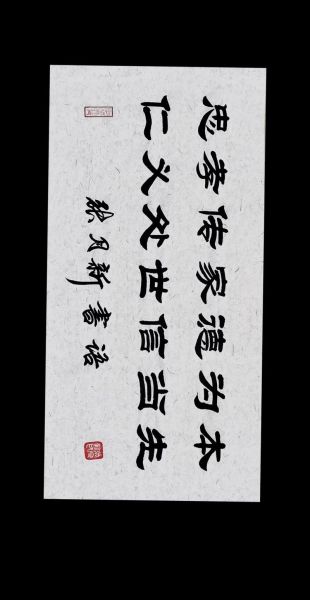 忠孝传家德为本
仁义处世信当先
张月新书语